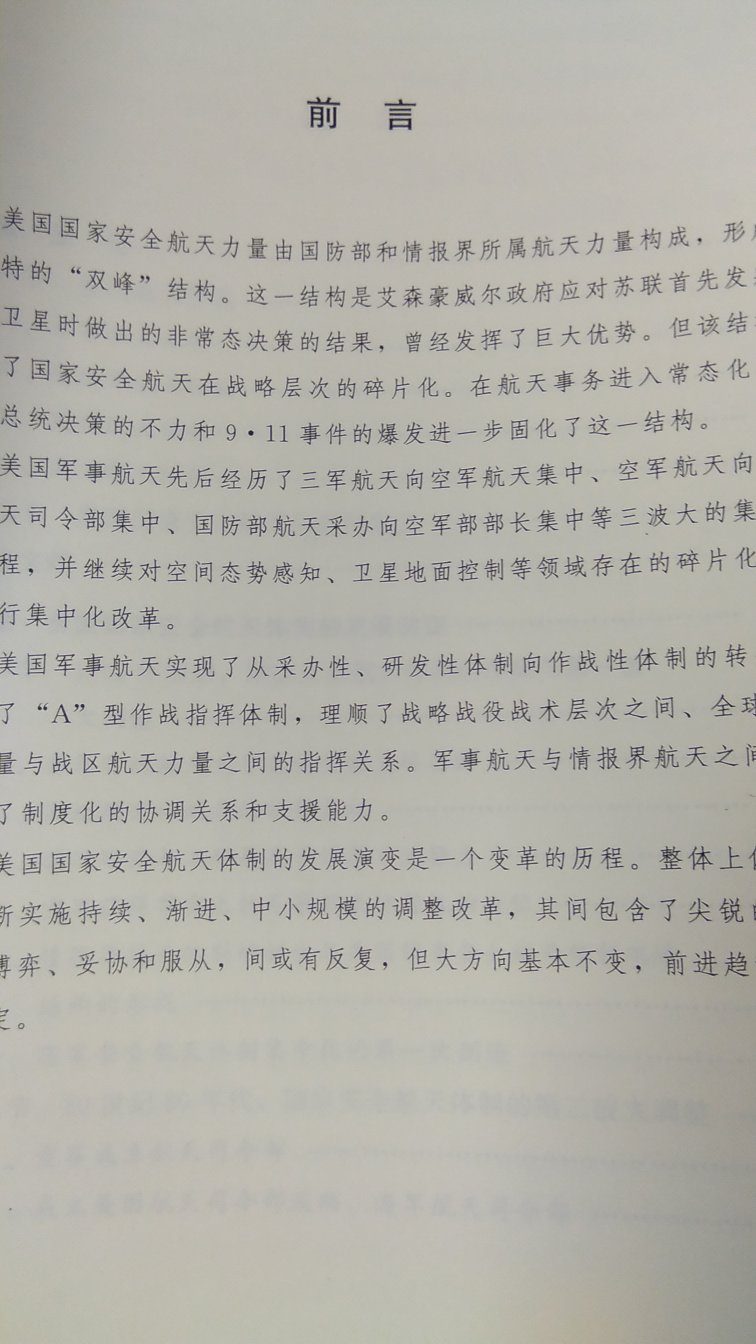 前 言
美国国家安全航天力量由国防部和情报界所属航天力量构成，形
特的“双峰”结构。这一结构是艾森豪威尔政府应对苏联首先发
卫星时做出的非常态决策的结果，曾经发挥了巨大优势。但该结
了国家安全航天在战略层次的碎片化。在航天事务进入常态化
总统决策的不力和9·11事件的爆发进一步固化了这一结构。
美国军事航天先后经历了三军航天向空军航天集中、空军航天向
天司令部集中、国防部航天采办向空军部部长集中等三波大的集
程，并继续对空间态势感知、卫星地面控制等领域存在的碎片化
行集中化改革。
美国军事航天实现了从采办性、研发性体制向作战性体制的转
了“A”型作战指挥体制，理顺了战略战役战术层次之间、全球
量与战区航天力量之间的指挥关系。军事航天与情报界航天之间
了制度化的协调关系和支援能力。
美国国家安全航天体制的发展演变是一个变革的历程。整体上
新实施持续、渐进、中小规模的调整改革，其间包含了尖锐
博弈、妥协和服从，间或有反复，但大方向基本不变，前进趋
定。